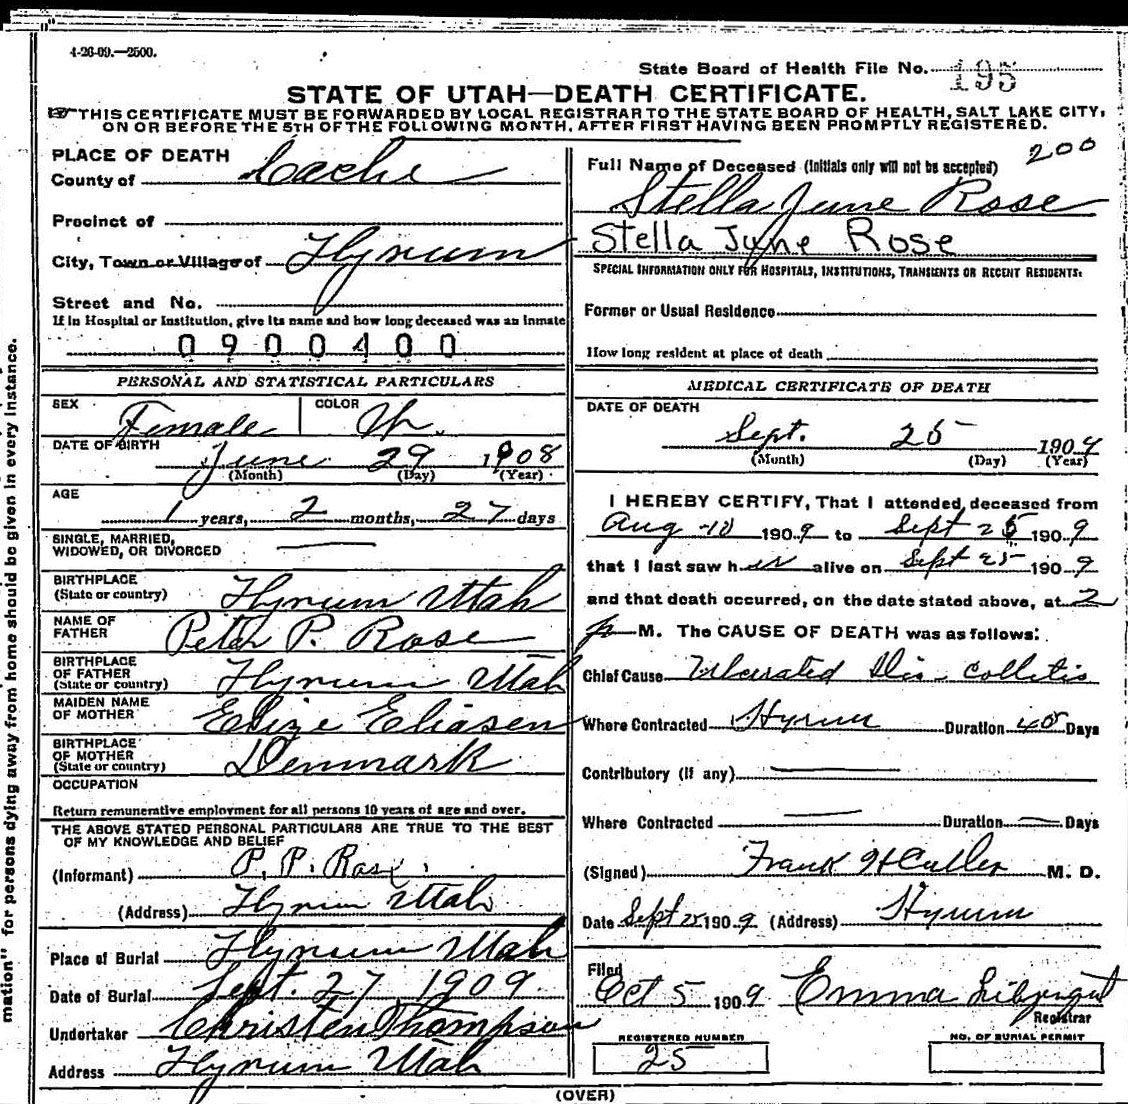 4-26-09.—2500.
State Board of Health File No. 195
STATE OF UTAH—DEATH CERTIFICATE.
THIS CERTIFICATE MUST BE FORWARDED BY LOCAL REGISTRAR TO THE STATE BOARD OF HEALTH, SALT LAKE CITY,
ON OR BEFORE THE 5TH OF THE FOLLOWING MONTH, AFTER FIRST HAVING BEEN PROMPTLY REGISTERED.
PLACE OF DEATH
County of Cache
Precinct of
City, Town or Village of Hyrum
Street and No.
If in Hospital or Institution, give its name and how long deceased was an inmate
0900400
PERSONAL AND STATISTICAL PARTICULARS
SEX Female COLOR Wh.
DATE OF BIRTH June 29 1908
(Month) (Day) (Year)
AGE
1 years, 2 months, 27 days
SINGLE, MARRIED,
WIDOWED, OR DIVORCED
BIRTHPLACE
(State or country) Hyrum Utah
NAME OF
FATHER Peter P. Rose
BIRTHPLACE
OF FATHER
(State or country) Hyrum Utah
MAIDEN NAME
OF MOTHER Elize Eliasen
BIRTHPLACE
OF MOTHER
(State or country) Denmark
OCCUPATION
Return remunerative employment for all persons 10 years of age and over.
THE ABOVE STATED PERSONAL PARTICULARS ARE TRUE TO THE BEST
OF MY KNOWLEDGE AND BELIEF
(Informant) P. P. Rose
(Address) Hyrum Utah
Place of Burial Hyrum Utah
Date of Burial Sept. 27, 1909.
Undertaker Christen Thompson
Address Hyrum Utah
200
Full Name of Deceased (Initials only will not be accepted)
Stella June Rose
Stella June Rose
SPECIAL INFORMATION ONLY FOR HOSPITALS, INSTITUTIONS, TRANSIENTS OR RECENT RESIDENTS:
Former or Usual Residence
How long resident at place of death
MEDICAL CERTIFICATE OF DEATH
DATE OF DEATH
Sept. 25 1909
(Month) (Day) (Year)
I HEREBY CERTIFY, That I attended deceased from
Aug 10 1909 to Sept 25 1909
that I last saw her alive on Sept 25 1909
and that death occurred, on the date stated above, at 2
p M. The CAUSE OF DEATH was as follows:
Chief Cause Ulcerated Ilio-Collitis
Where Contracted Hyrum Duration 45 Days
Contributory (if any)
Where Contracted Duration Days
(Signed) Frank H Culler M. D.
Date Sept 25 1909 (Address) Hyrum
Filed
Oct 5 1909 Emma
Registrar
REGISTERED NUMBER
25
NO. OF BURIAL PERMIT
(OVER)
mation" for persons dying away from home should be given in every instance.